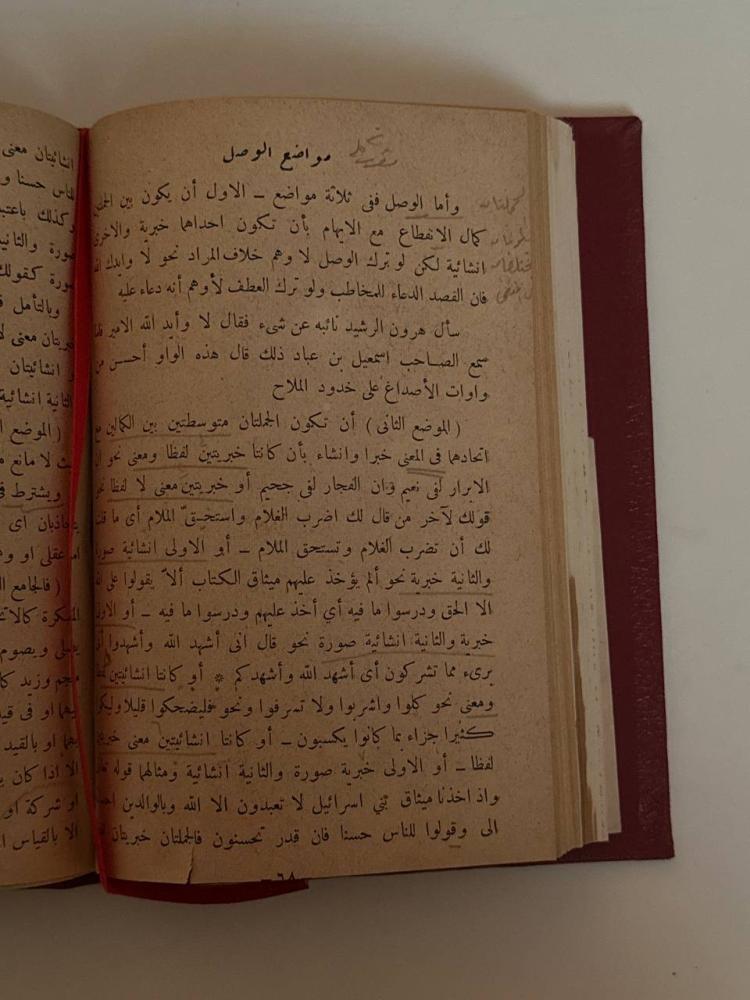 مواضع الوصل
وأما الوصل ففى ثلاثة مواضع – الاول أن يكون بين
كمال الانقطاع مع الايهام بأن تكون احداهما خبرية والاخرى
انشائية لكن لو ترك الوصل لا وهم خلاف المراد نحو لا وايدك
فان القصد الدعاء للمخاطب ولو ترك العطف لأوهم أنه دعاء عليه
سأل هرون الرشيد نائبه عن شىء فقال لا وأيد الله الامير
سمع الصاحب اسمعيل بن عباد ذلك قال هذه الواو أحسن من
واوات الأصداغ على خدود الملاح
(الموضع الثانى) أن تكون الجملتان متوسطتين بين الكمالين مع
اتحادهما فى المعنى خبرا وانشاء بأن كانتا خبريتين لفظا ومعنى نحو
الابرار لفى نعيم وان الفجار لفى جحيم أو خبريتين معنى لا لفظا نحو
قولك لآخر من قال لك اضرب الغلام واستحق الملام أى ما
لك أن تضرب الغلام وتستحق الملام – أو الاولى انشائية صورة
والثانية خبرية نحو ألم يؤخذ عليهم ميثاق الكتاب ألا يقولوا على
الا الحق ودرسوا ما فيه أي أخذ عليهم ودرسوا ما فيه – أو
خبرية والثانية انشائية صورة نحو قال انى أشهد الله وأشهدوا
برىء مما تشركون أى أشهد الله وأشهدكم * أو كانتا انشائيتين
ومعنى نحو كلوا واشربوا ولا تسرفوا ونحو فليضحكوا قليلا
كثيرا جزاء بما كانوا يكسبون – أو كانتا انشائيتين معنى
لفظا – أو الاولى خبرية صورة والثانية انشائية ومثالهما قوله
واذ اخذنا ميثاق بنى اسرائيل لا تعبدون الا الله وبالوالدين
الى وقولوا للناس حسنا فان قدر تحسنون فالجملتان خبريتان
انشائيتان معنى
للناس حسنا
كذلك
صورة والثانية
كقولك
وبالتأمل
معنى
انشائيتان
الثانية انشائية
(الموضع
لا مانع
ويشترط
اى
عقلى او
(فالجامع
ويصوم
وزيد
او فى
او بالقيد
الا اذا كان
او شركة او
الا بالقياس